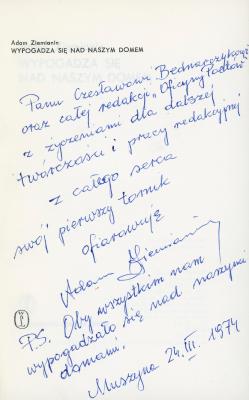 Adam Ziemianin
WYPOGADZA SIĘ NAD NASZYM DOMEM
Panu Czesławowi Bednarczykowi
oraz całej redakcji „Oficyny Poetów"
z życzeniami dla dalszej
twórczości i pracy redakcyjnej
z całego serca
swój pierwszy tomik
ofiarowuję
Adam Ziemianin
P.S. Oby wszystkim nam
wypogadzało się nad naszymi
domami.
Muszyna 24.III.1974